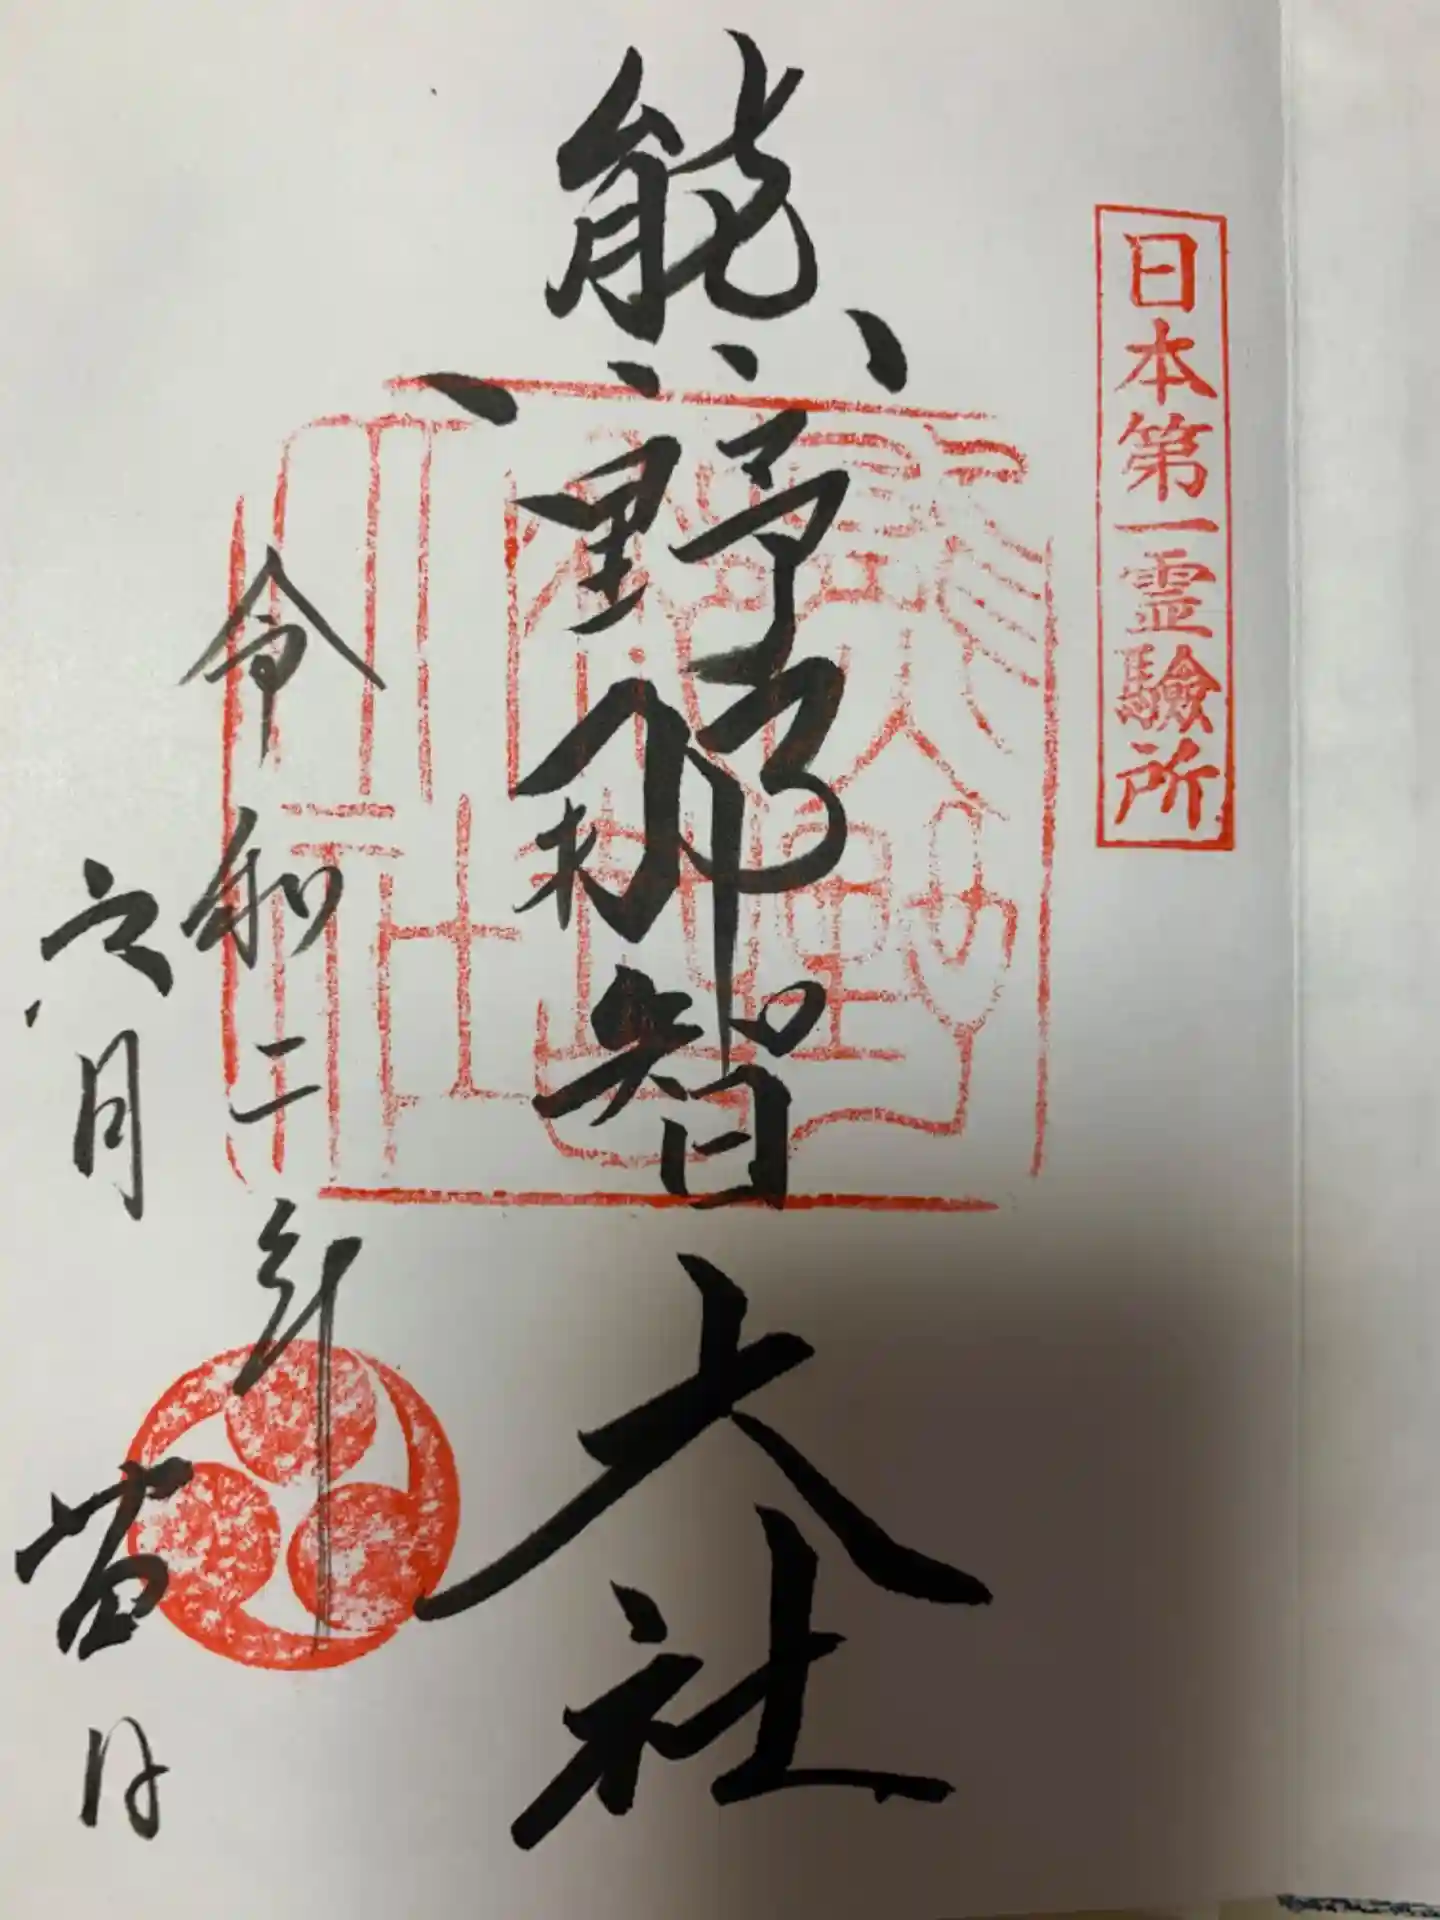 日本第一霊驗所
熊野那智大社
令和二年
六月廿四日